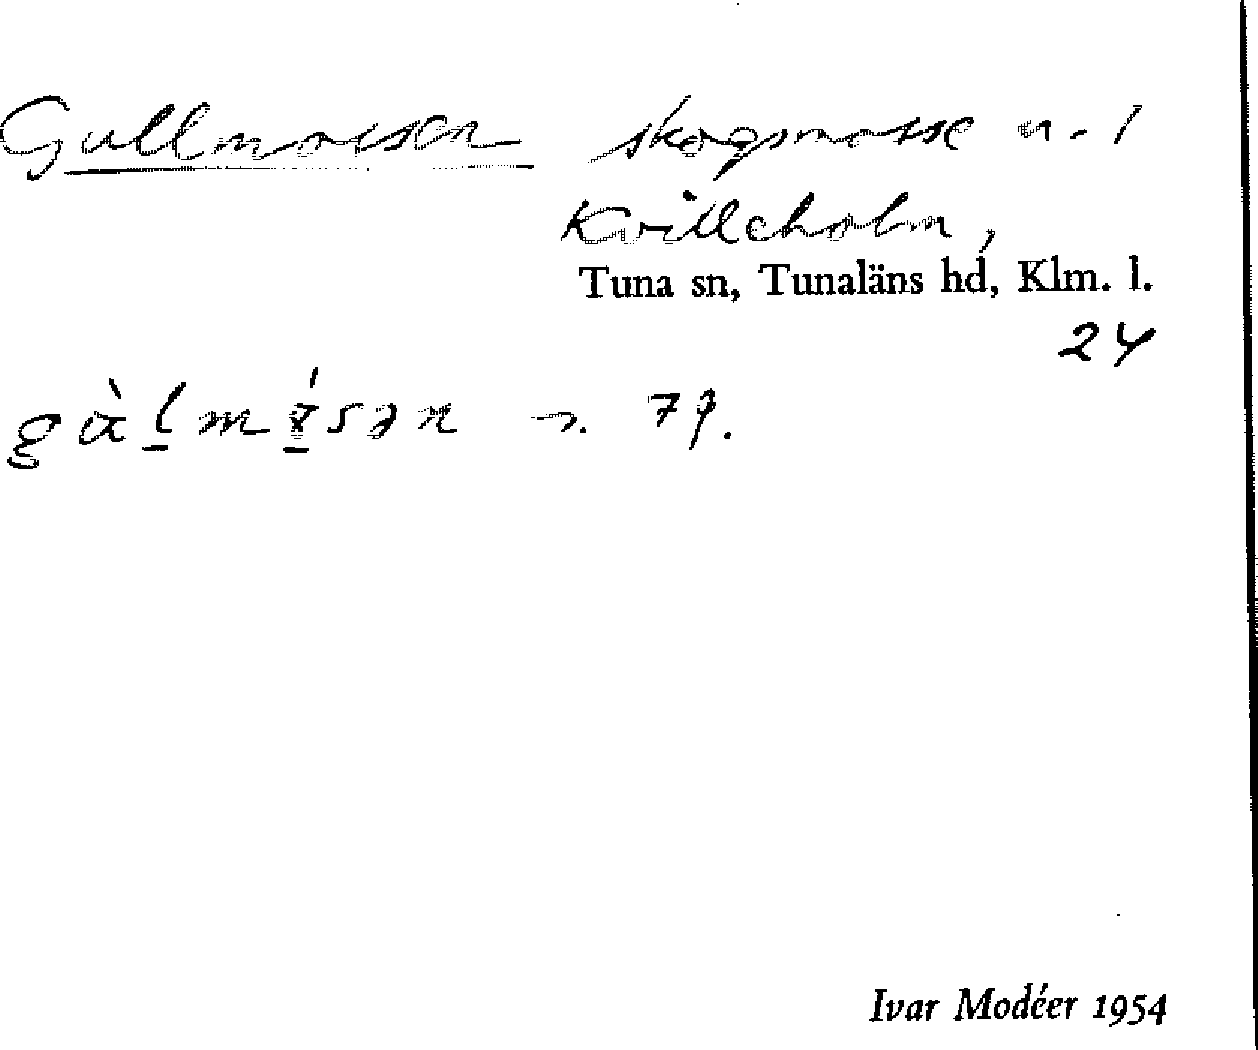 Gullmossen skogsmosse n. 1
Kvilleholm,
Tuna sn, Tunaläns hd, Klm. l.
24
79.
Ivar Modéer 1954